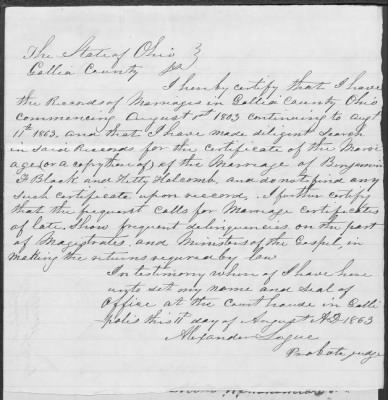 The State of Ohio }
Gallia County } ss
I hereby certify that I have
the Records of Marriages in Gallia County Ohio
commencing August 1st 1803 continuing to Augt
11th 1863, and that I have made diligent search
in said Records for the certificate of the Marri
age (or a copy thereof) of the Marriage of Benjamin
F Black and Kitty Holcomb, and do not find any
such certificate upon record, I further certify
that the frequent calls for Marriage certificates
of late, show frequent delinquencies on the part
of Magistrates and Ministers of the Gospel, in
making the returns required by law
In testimony whereof I have here
unto set my name and seal of
Office at the Court house in Galli
polis this 11 day of August AD 1863
Alexander Logue
Probate judge